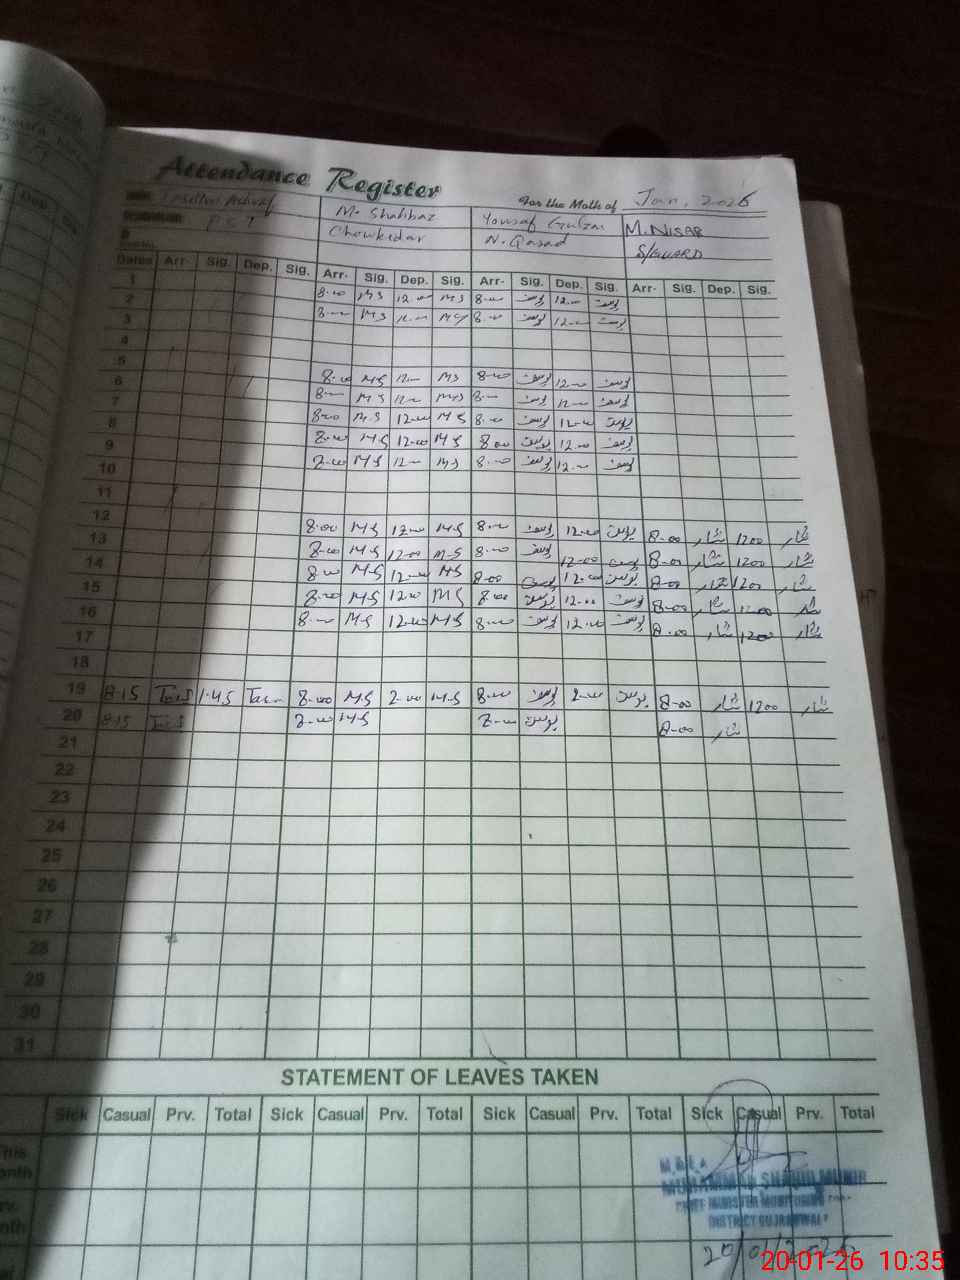 Attendance Register
For the Math of Jan, 2026
M. Shahbaz Yousaf Gulzar M. NISAR
Chowkidar N. Qasad S/GUARD
Dates Arr- Sig. Dep. Sig. Arr- Sig. Dep. Sig. Arr- Sig. Dep. Sig. Arr- Sig. Dep. Sig.
1
2 8-00 MS 12-00 MS 8-00 یوسف 12-00 یوسف
3 8-00 MS 12-00 MS 8-00 یوسف 12-00 یوسف
4
5
6 8-00 MS 12-00 MS 8-00 یوسف 12-00 یوسف
7 8-00 MS 12-00 MS 8-00 یوسف 12-00 یوسف
8 8-00 M-S 12-00 M-S 8-00 یوسف 12-00 یوسف
9 8-00 M-S 12-00 M-S 8-00 یوسف 12-00 یوسف
10 8-00 M-S 12-00 M-S 8-00 یوسف 12-00 یوسف
11
12
13 8-00 M-S 12-00 M-S 8-00 یوسف 12-00 یوسف 8-00 نثار 1200 نثار
14 8-00 M-S 12-00 M-S 8-00 یوسف 12-00 یوسف 8-00 نثار 1200 نثار
15 8-00 M-S 12-00 M-S 8-00 یوسف 12-00 یوسف 8-00 نثار 1200 نثار
16 8-00 M-S 12-00 M-S 8-00 یوسف 12-00 یوسف 8-00 نثار 1200 نثار
17 8-00 M-S 12-00 M-S 8-00 یوسف 12-00 یوسف 8-00 نثار 1200 نثار
18
19 8-15 1-45 8-00 M-S 2-00 M-S 8-00 یوسف 2-00 یوسف 8-00 نثار 1200 نثار
20 8-15 8-00 M-S 8-00 یوسف 8-00 نثار
21
22
23
24
25
26
27
28
29
30
31
STATEMENT OF LEAVES TAKEN
Sick Casual Prv. Total Sick Casual Prv. Total Sick Casual Prv. Total Sick Casual Prv. Total
M.&E.A
MUHAMMAD SHAHID MUNIR
CHIEF MINISTER MONITORING
DISTRICT GUJRANWALA
20/01/2026
20-01-26 10:35